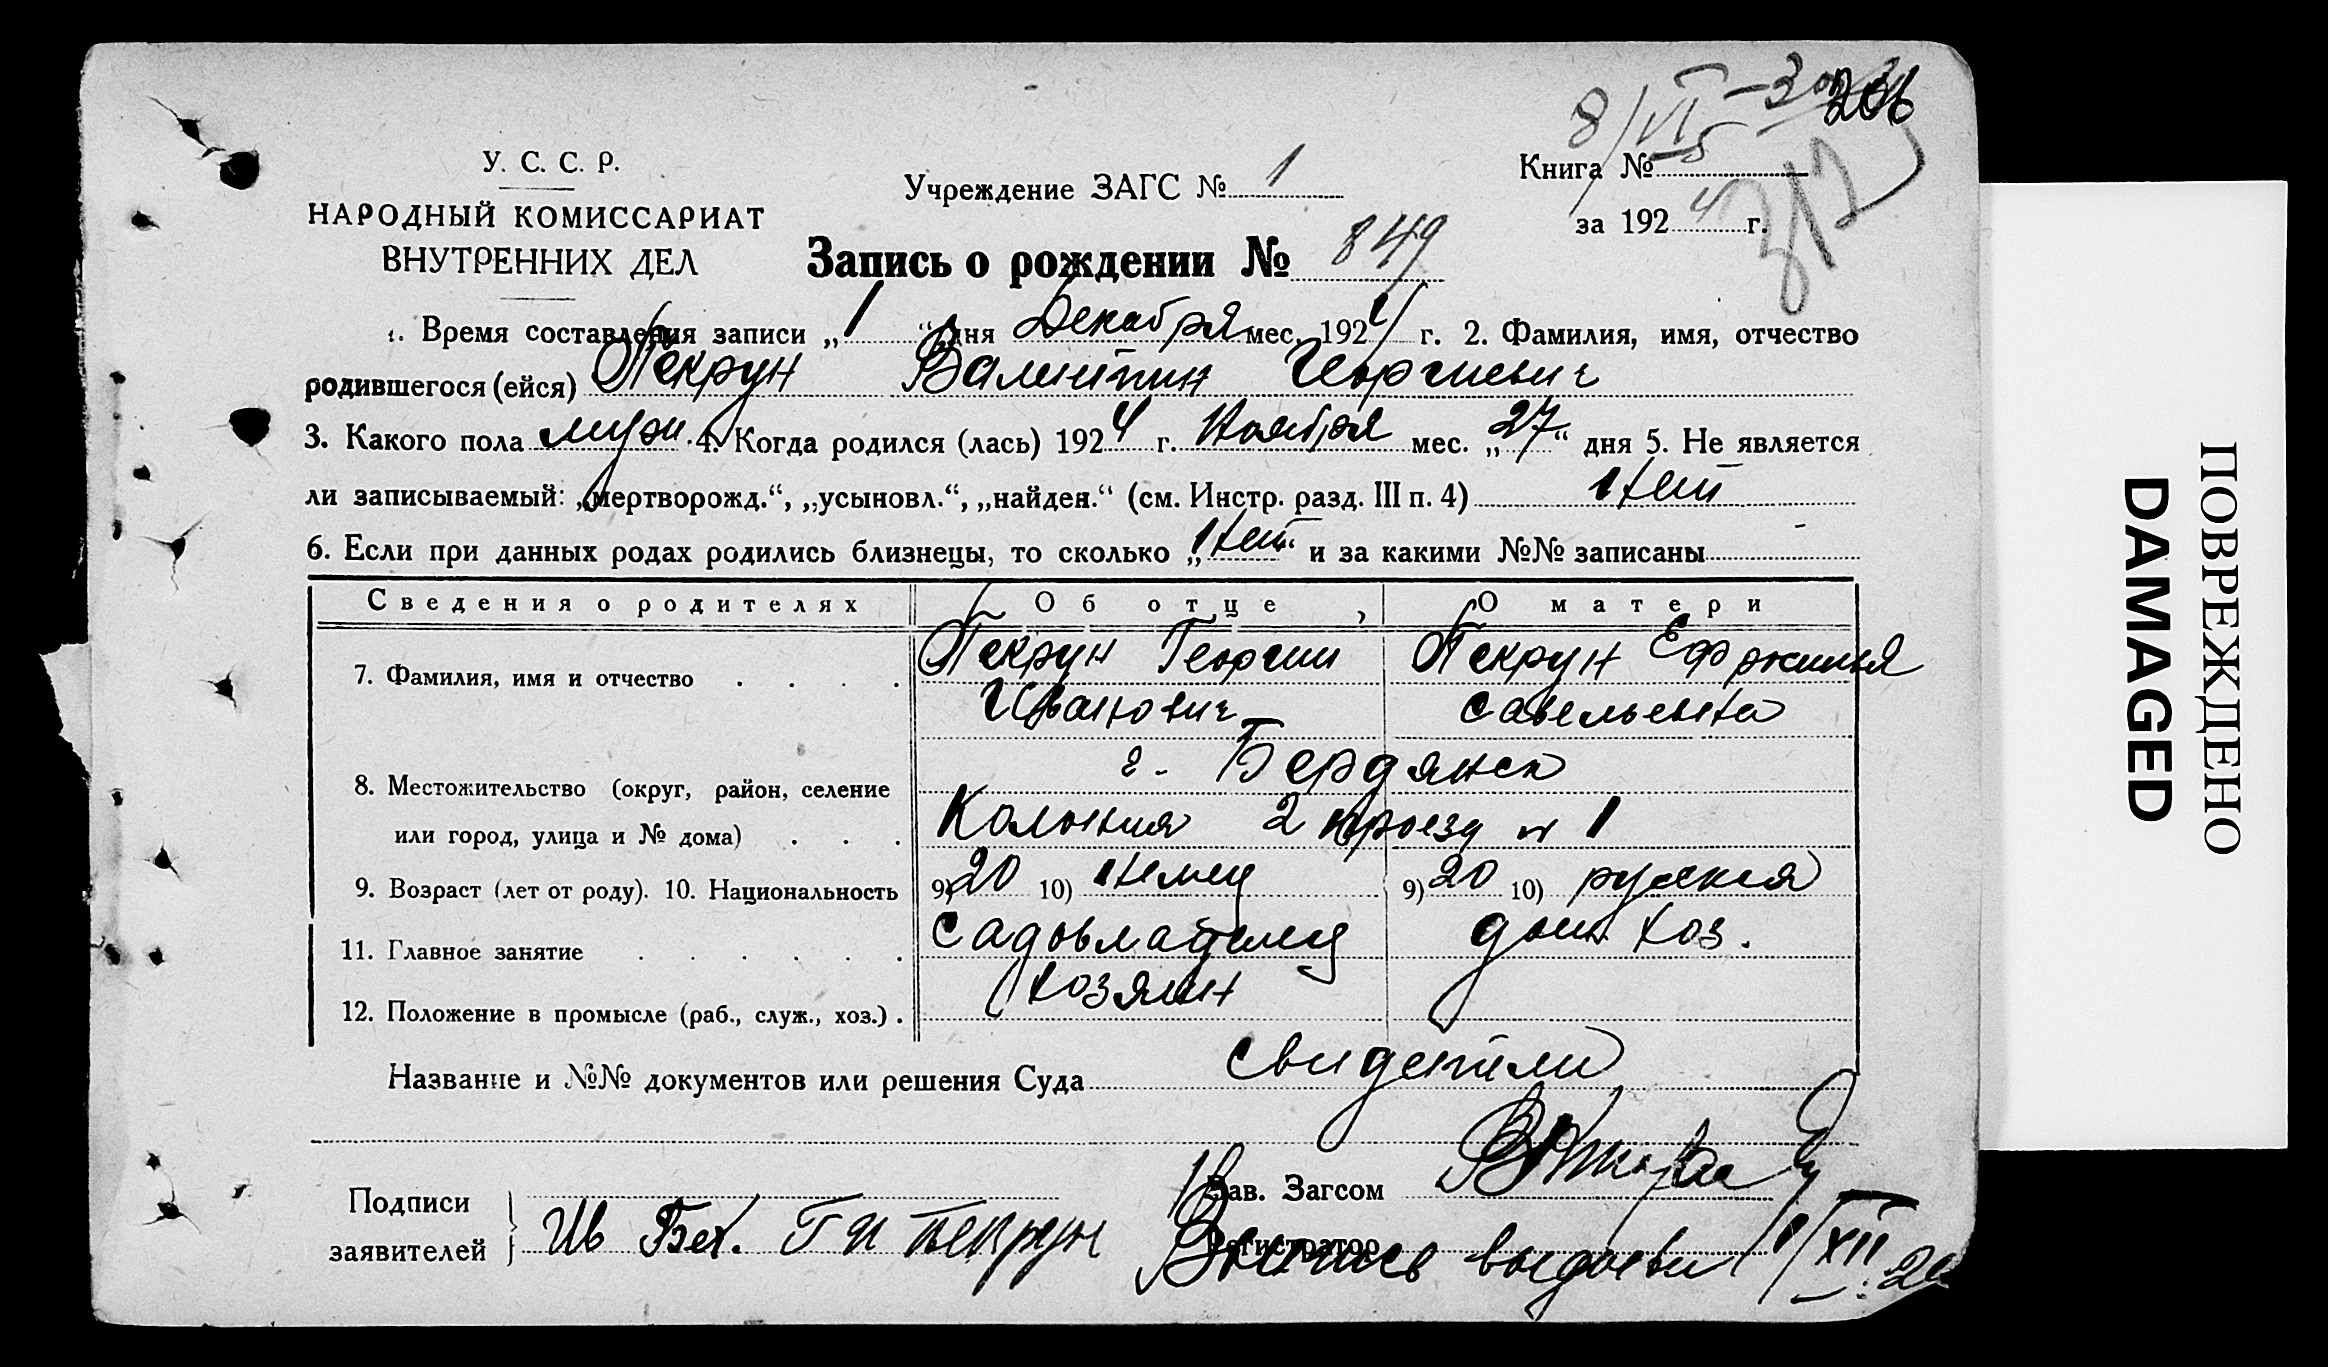 206
8/VI
312
У. С. С. Р.
НАРОДНЫЙ КОМИССАРИАТ
ВНУТРЕННИХ ДЕЛ
Учреждение ЗАГС № 1
Книга №
за 1924 г.
Запись о рождении № 849
1. Время составления записи „1“ дня Декабря мес. 1924 г. 2. Фамилия, имя, отчество
родившегося (ейся) Пекрун Валентин Георгиевич
3. Какого пола муж. 4. Когда родился (лась) 1924 г. Ноября мес. „27“ дня 5. Не является
ли записываемый: „мертворожд.“, „усыновл.“, „найден.“ (см. Инстр. разд. III п. 4) Нет
6. Если при данных родах родились близнецы, то сколько „Нет“ и за какими №№ записаны -
Сведения о родителях Об отце О матери
7. Фамилия, имя и отчество . . . . Пекрун Георгий Пекрун Ефросинья
Иванович Савельевна
г. Бердянск
8. Местожительство (округ, район, селение
или город, улица и № дома) . . . Колония 2 проезд № 1
9. Возраст (лет от роду). 10. Национальность 9) 20 10) немец 9) 20 10) русская
11. Главное занятие . . . . . . Садовладелец дом. хоз.
12. Положение в промысле (раб., служ., хоз.) . хозяин
Название и №№ документов или решения Суда свидетели
Подписи
заявителей
Зав. Загсом
Ив Бех. Г И Пекрун
Регистратор
Выпись выдана 1/XII
ПОВРЕЖДЕНО
DAMAGED